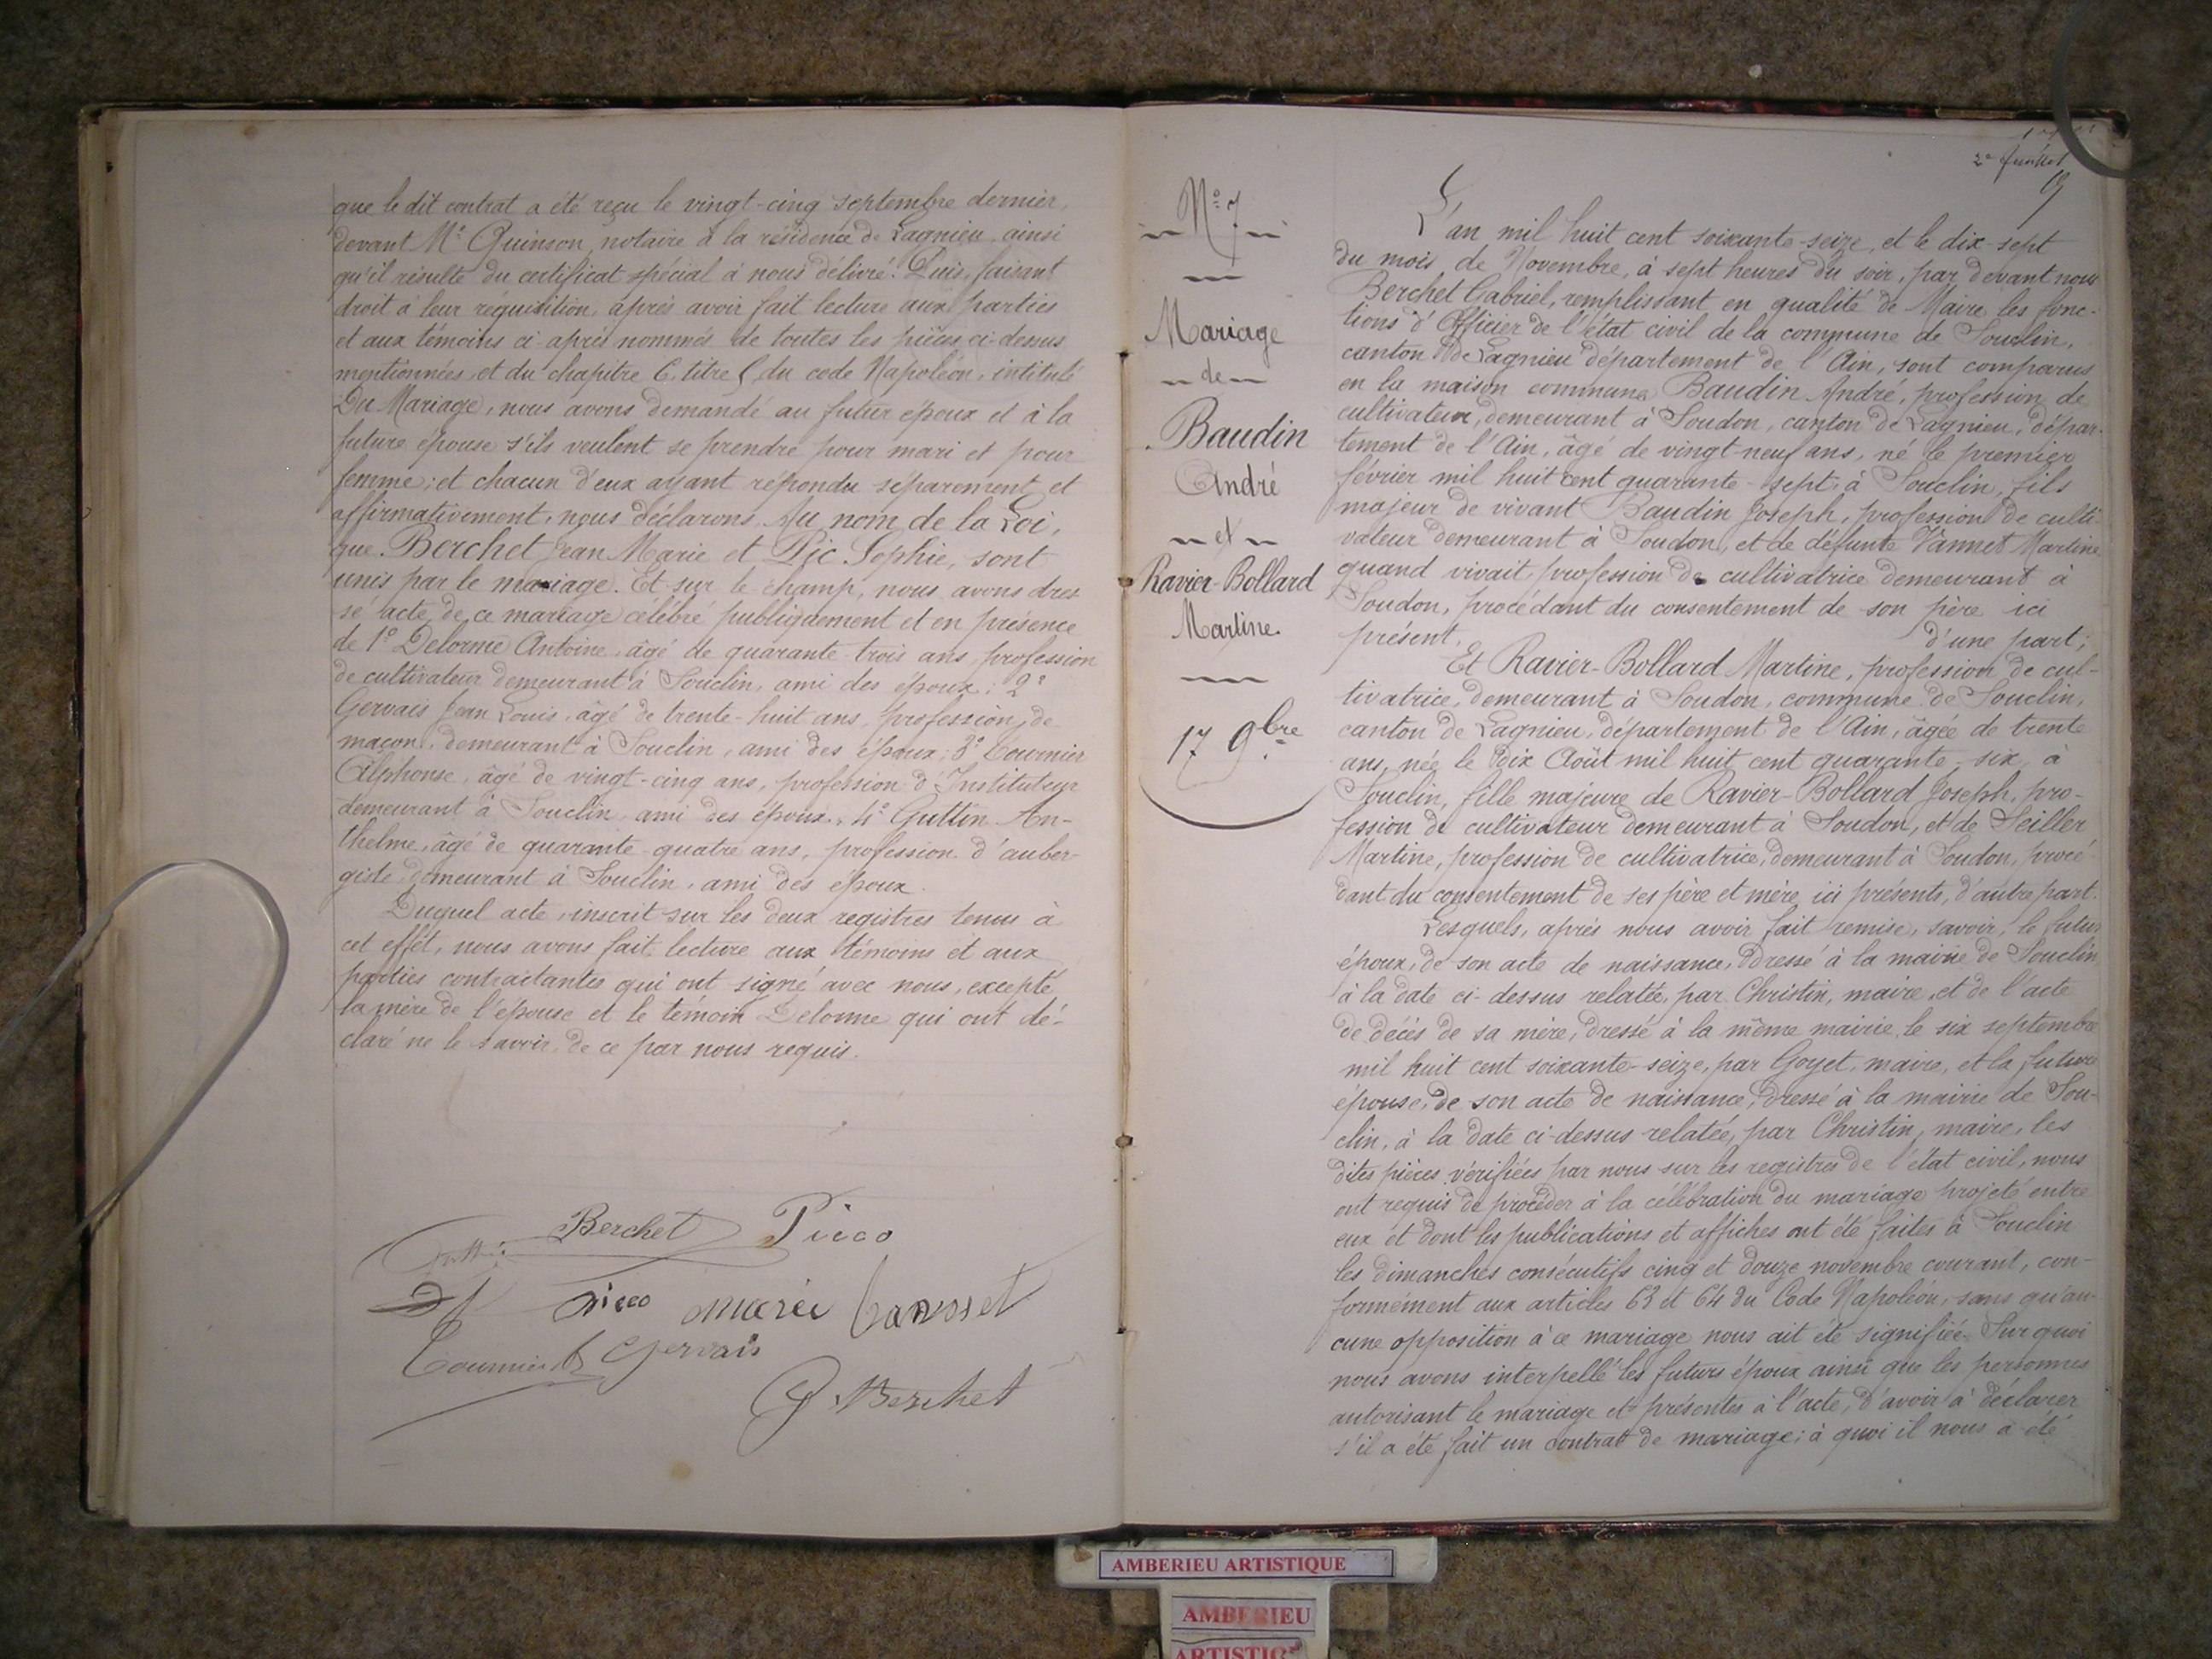 que le dit contrat a été reçu le vingt-cinq septembre dernier,
devant Me Quinson, notaire à la résidence de Lagnieu ainsi
qu'il résulte du certificat spécial à nous délivré. Puis, faisant
droit à leur réquisition, après avoir fait lecture aux parties
et aux témoins ci-après nommés de toutes les pièces ci-dessus
mentionnées et du chapitre 6, titre 5, du code Napoléon, intitulé
Du Mariage, nous avons demandé au futur époux et à la
future épouse s'ils veulent se prendre pour mari et pour
femme; et chacun d'eux ayant répondu séparement et
affirmativement, nous déclarons Au nom de la Loi,
que Berchet Jean Marie et Pic Sophie, sont
unis par le mariage. Et sur le champ, nous avons dres
sé acte de ce mariage célébré publiquement et en présence
de 1° Delorme Antoine, âgé de quarante-trois ans, profession
de cultivateur demeurant à Souclin, ami des époux; 2°
Gervais Jean Louis, âgé de trente-huit ans, profession de
maçon, demeurant à Souclin, ami des époux; 3° Tournier
Alphonse, âgé de vingt-cinq ans, profession d'Instituteur
demeurant à Souclin, ami des époux; 4° Guttin An-
thelme, âgé de quarante-quatre ans, profession d'auber-
giste, demeurant à Souclin, ami des époux.
Duquel acte, inscrit sur les deux registres tenus à
cet effét, nous avons fait lecture aux témoins et aux
parties contractantes qui ont signé avec nous, excepté
la mère de l'épouse et le témoin Delorme qui ont dé-
claré ne le savoir, de ce par nous requis.
Berchet Picco
Picco Marie
Tournier Gervais
G Berchet
N° 7
Mariage
de
Baudin
André
et
Ravier-Bollard
Martine.
17 9bre
2e feuillet
L'an mil huit cent soixante-seize, et le dix-sept
du mois de Novembre, à sept heures du soir, par devant nous
Berchet Gabriel, remplissant en qualité de Maire les fonc-
tions d'Officier de l'état civil de la commune de Souclin,
canton de Lagnieu département de l'Ain, sont comparus
en la maison commune Baudin André, profession de
cultivateur, demeurant à Soudon, canton de Lagnieu, dépar-
tement de l'Ain, âgé de vingt-neuf ans, né le premier
février mil huit cent quarante-sept, à Souclin, fils
majeur de vivant Baudin Joseph, profession de culti-
vateur demeurant à Soudon, et de défunte Vannet Martine
quand vivait, profession de cultivatrice demeurant à
Soudon, procédant du consentement de son père ici
présent. d'une part;
Et Ravier-Bollard Martine, profession de cul-
tivatrice, demeurant à Soudon, commune de Souclin,
canton de Lagnieu, département de l'Ain, âgée de trente
ans, née le dix Août mil huit cent quarante-six, à
Souclin, fille majeure de Ravier-Bollard Joseph, pro-
fession de cultivateur demeurant à Soudon, et de Seiller
Martine, profession de cultivatrice, demeurant à Soudon, procé-
dant du consentement de ses père et mère, ici présents, d'autre part.
Lesquels, après nous avoir fait remise, savoir, le futur
époux, de son acte de naissance, dressé à la mairie de Souclin
à la date ci-dessus relatée, par Christin, maire, et de l'acte
de décès de sa mère, dressé à la même mairie le six septembre
mil huit cent soixante-seize, par Goyet, maire, et la future
épouse, de son acte de naissance, dressé à la mairie de Sou-
clin, à la date ci-dessus relatée, par Christin, maire, les
dites pièces vérifiées par nous sur les registres de l'état civil, nous
ont requis de procéder à la célébration du mariage projeté entre
eux et dont les publications et affiches ont été faites à Souclin
les dimanches consécutifs cinq et douze novembre courant, con-
formément aux articles 63 et 64 du Code Napoléon, sans qu'au-
cune opposition à ce mariage nous ait été signifiée. Sur quoi
nous avons interpellé les futurs époux ainsi que les personnes
autorisant le mariage et présentes à l'acte, d'avoir à déclarer
s'il a été fait un contrat de mariage; à quoi il nous a été
AMBERIEU ARTISTIQUE
AMBERIEU